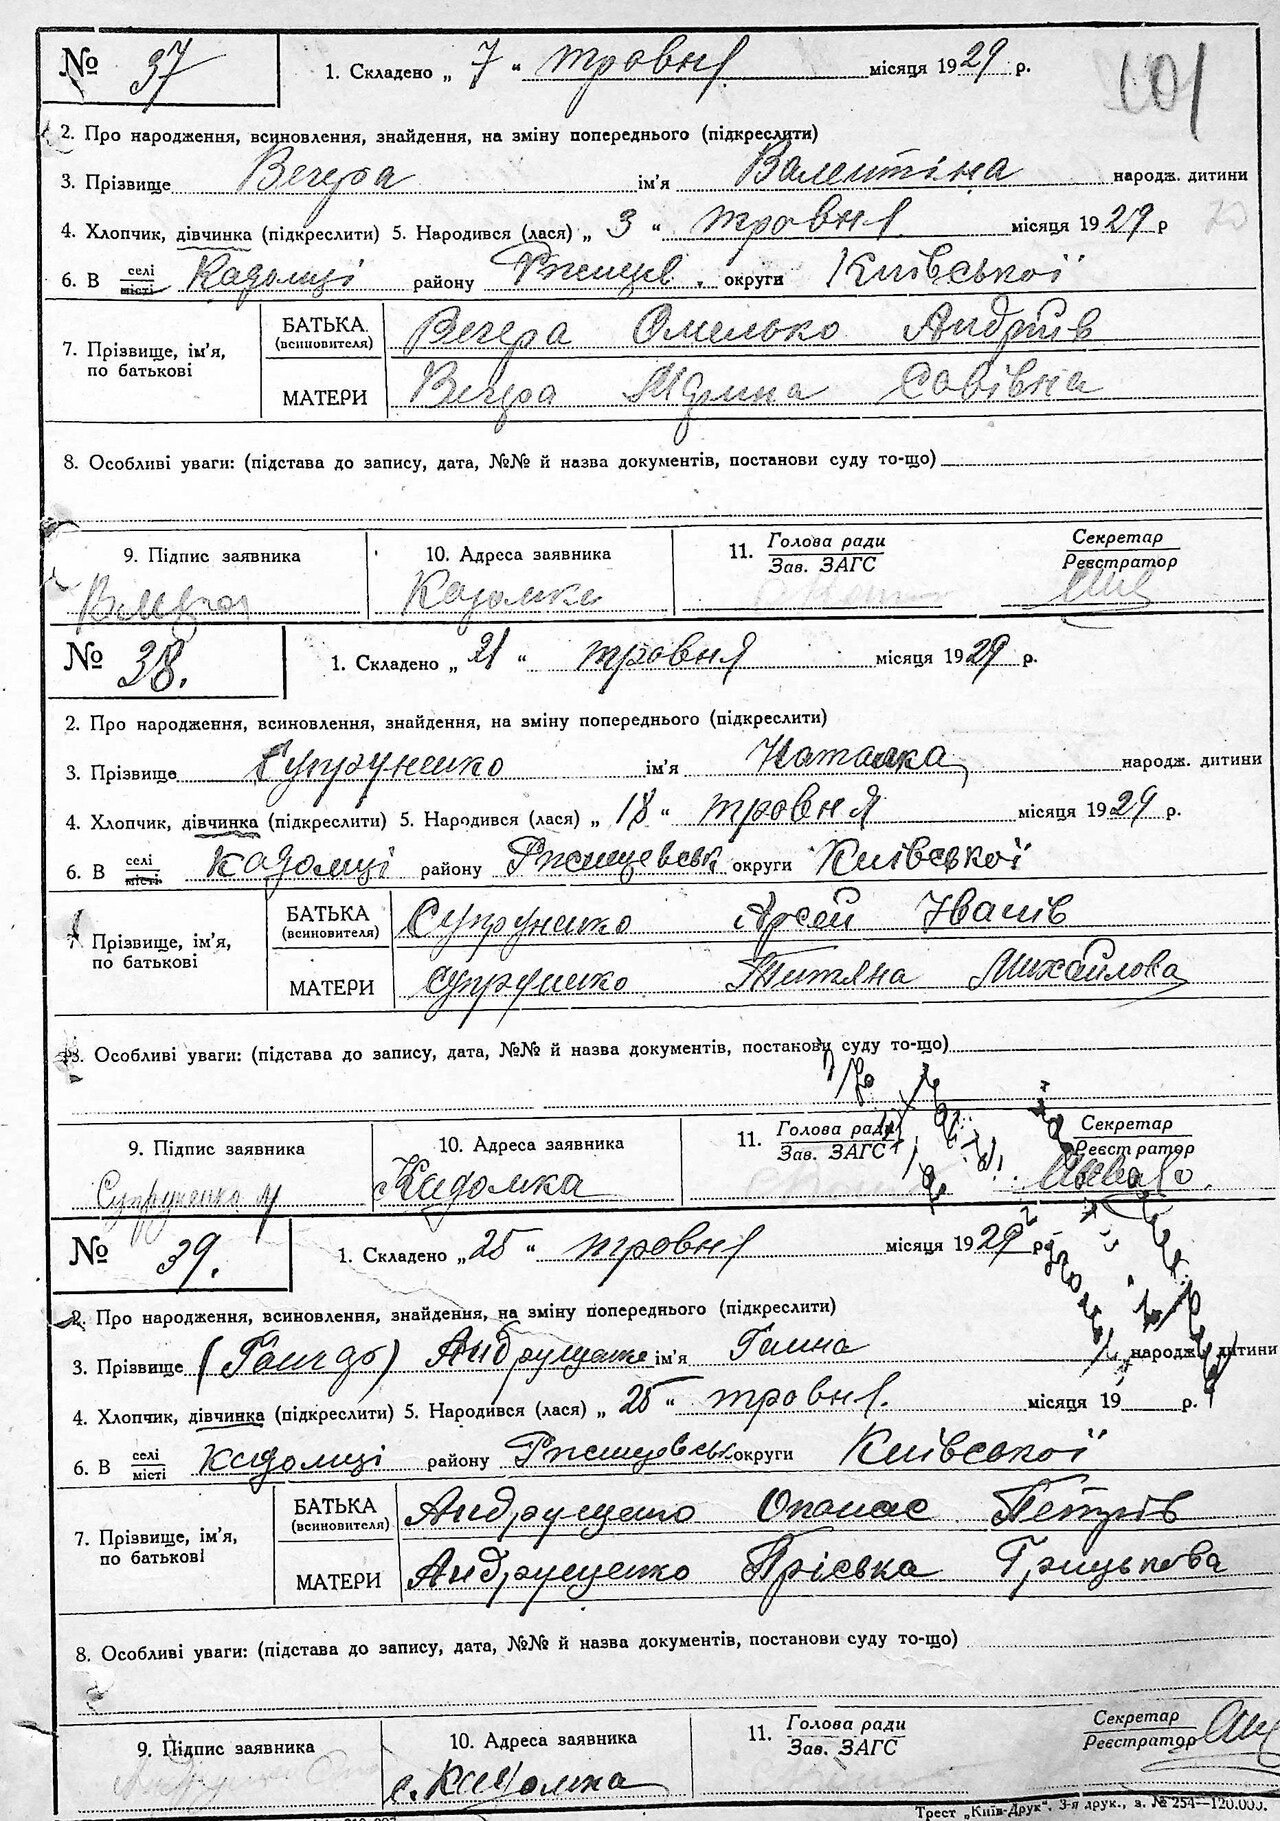 № 37 1. Складено „ 7 “ травня місяця 1929 р. 101
2. Про народження, всиновлення, знайдення, на зміну попереднього (підкреслити)
3. Прізвище Вечера ім'я Валентіна народж. дитини
4. Хлопчик, дівчинка (підкреслити) 5. Народився (лася) „ 3 “ травня місяця 1929 р
6. В селі місті Кадомці району Ржищев. округи Київської
7. Прізвище, ім'я, по батькові
БАТЬКА (всиновителя) Вечера Омелько Андріїв
МАТЕРИ Вечера Савівна
8. Особливі уваги: (підстава до запису, дата, №№ й назва документів, постанови суду то-що)
9. Підпис заявника 10. Адреса заявника 11. Голова ради Зав. ЗАГС Секретар Реєстратор
Кадомка
№ 38. 1. Складено „ 21 “ травня місяця 1929 р.
2. Про народження, всиновлення, знайдення, на зміну попереднього (підкреслити)
3. Прізвище Супруненко ім'я Наталка народж. дитини
4. Хлопчик, дівчинка (підкреслити) 5. Народився (лася) „ 18 “ травня місяця 1929 р.
6. В селі місті Кадомці району Ржищевськ округи Київської
7. Прізвище, ім'я, по батькові
БАТЬКА (всиновителя) Супруненко Арсей Іванів
МАТЕРИ Супруненко Титяна Михайлова
8. Особливі уваги: (підстава до запису, дата, №№ й назва документів, постанови суду то-що)
9. Підпис заявника 10. Адреса заявника 11. Голова ради Зав. ЗАГС Секретар Реєстратор
Супруненко Кадомка
№ 39. 1. Складено „ 25 “ травня місяця 1929 р.
2. Про народження, всиновлення, знайдення, на зміну попереднього (підкреслити)
3. Прізвище Андрущенко ім'я Галина народж. дитини
4. Хлопчик, дівчинка (підкреслити) 5. Народився (лася) „ 25 “ травня місяця 19 р.
6. В селі місті Кадомці району Ржищевськ округи Київської
7. Прізвище, ім'я, по батькові
БАТЬКА (всиновителя) Андрущенко Опанас Петрів
МАТЕРИ Андрущенко Пріська Грицькова
8. Особливі уваги: (підстава до запису, дата, №№ й назва документів, постанови суду то-що)
9. Підпис заявника 10. Адреса заявника 11. Голова ради Зав. ЗАГС Секретар Реєстратор
с. Кадомка
Трест „Київ-Друк“. 3-я друк., з. № 254—120.000.